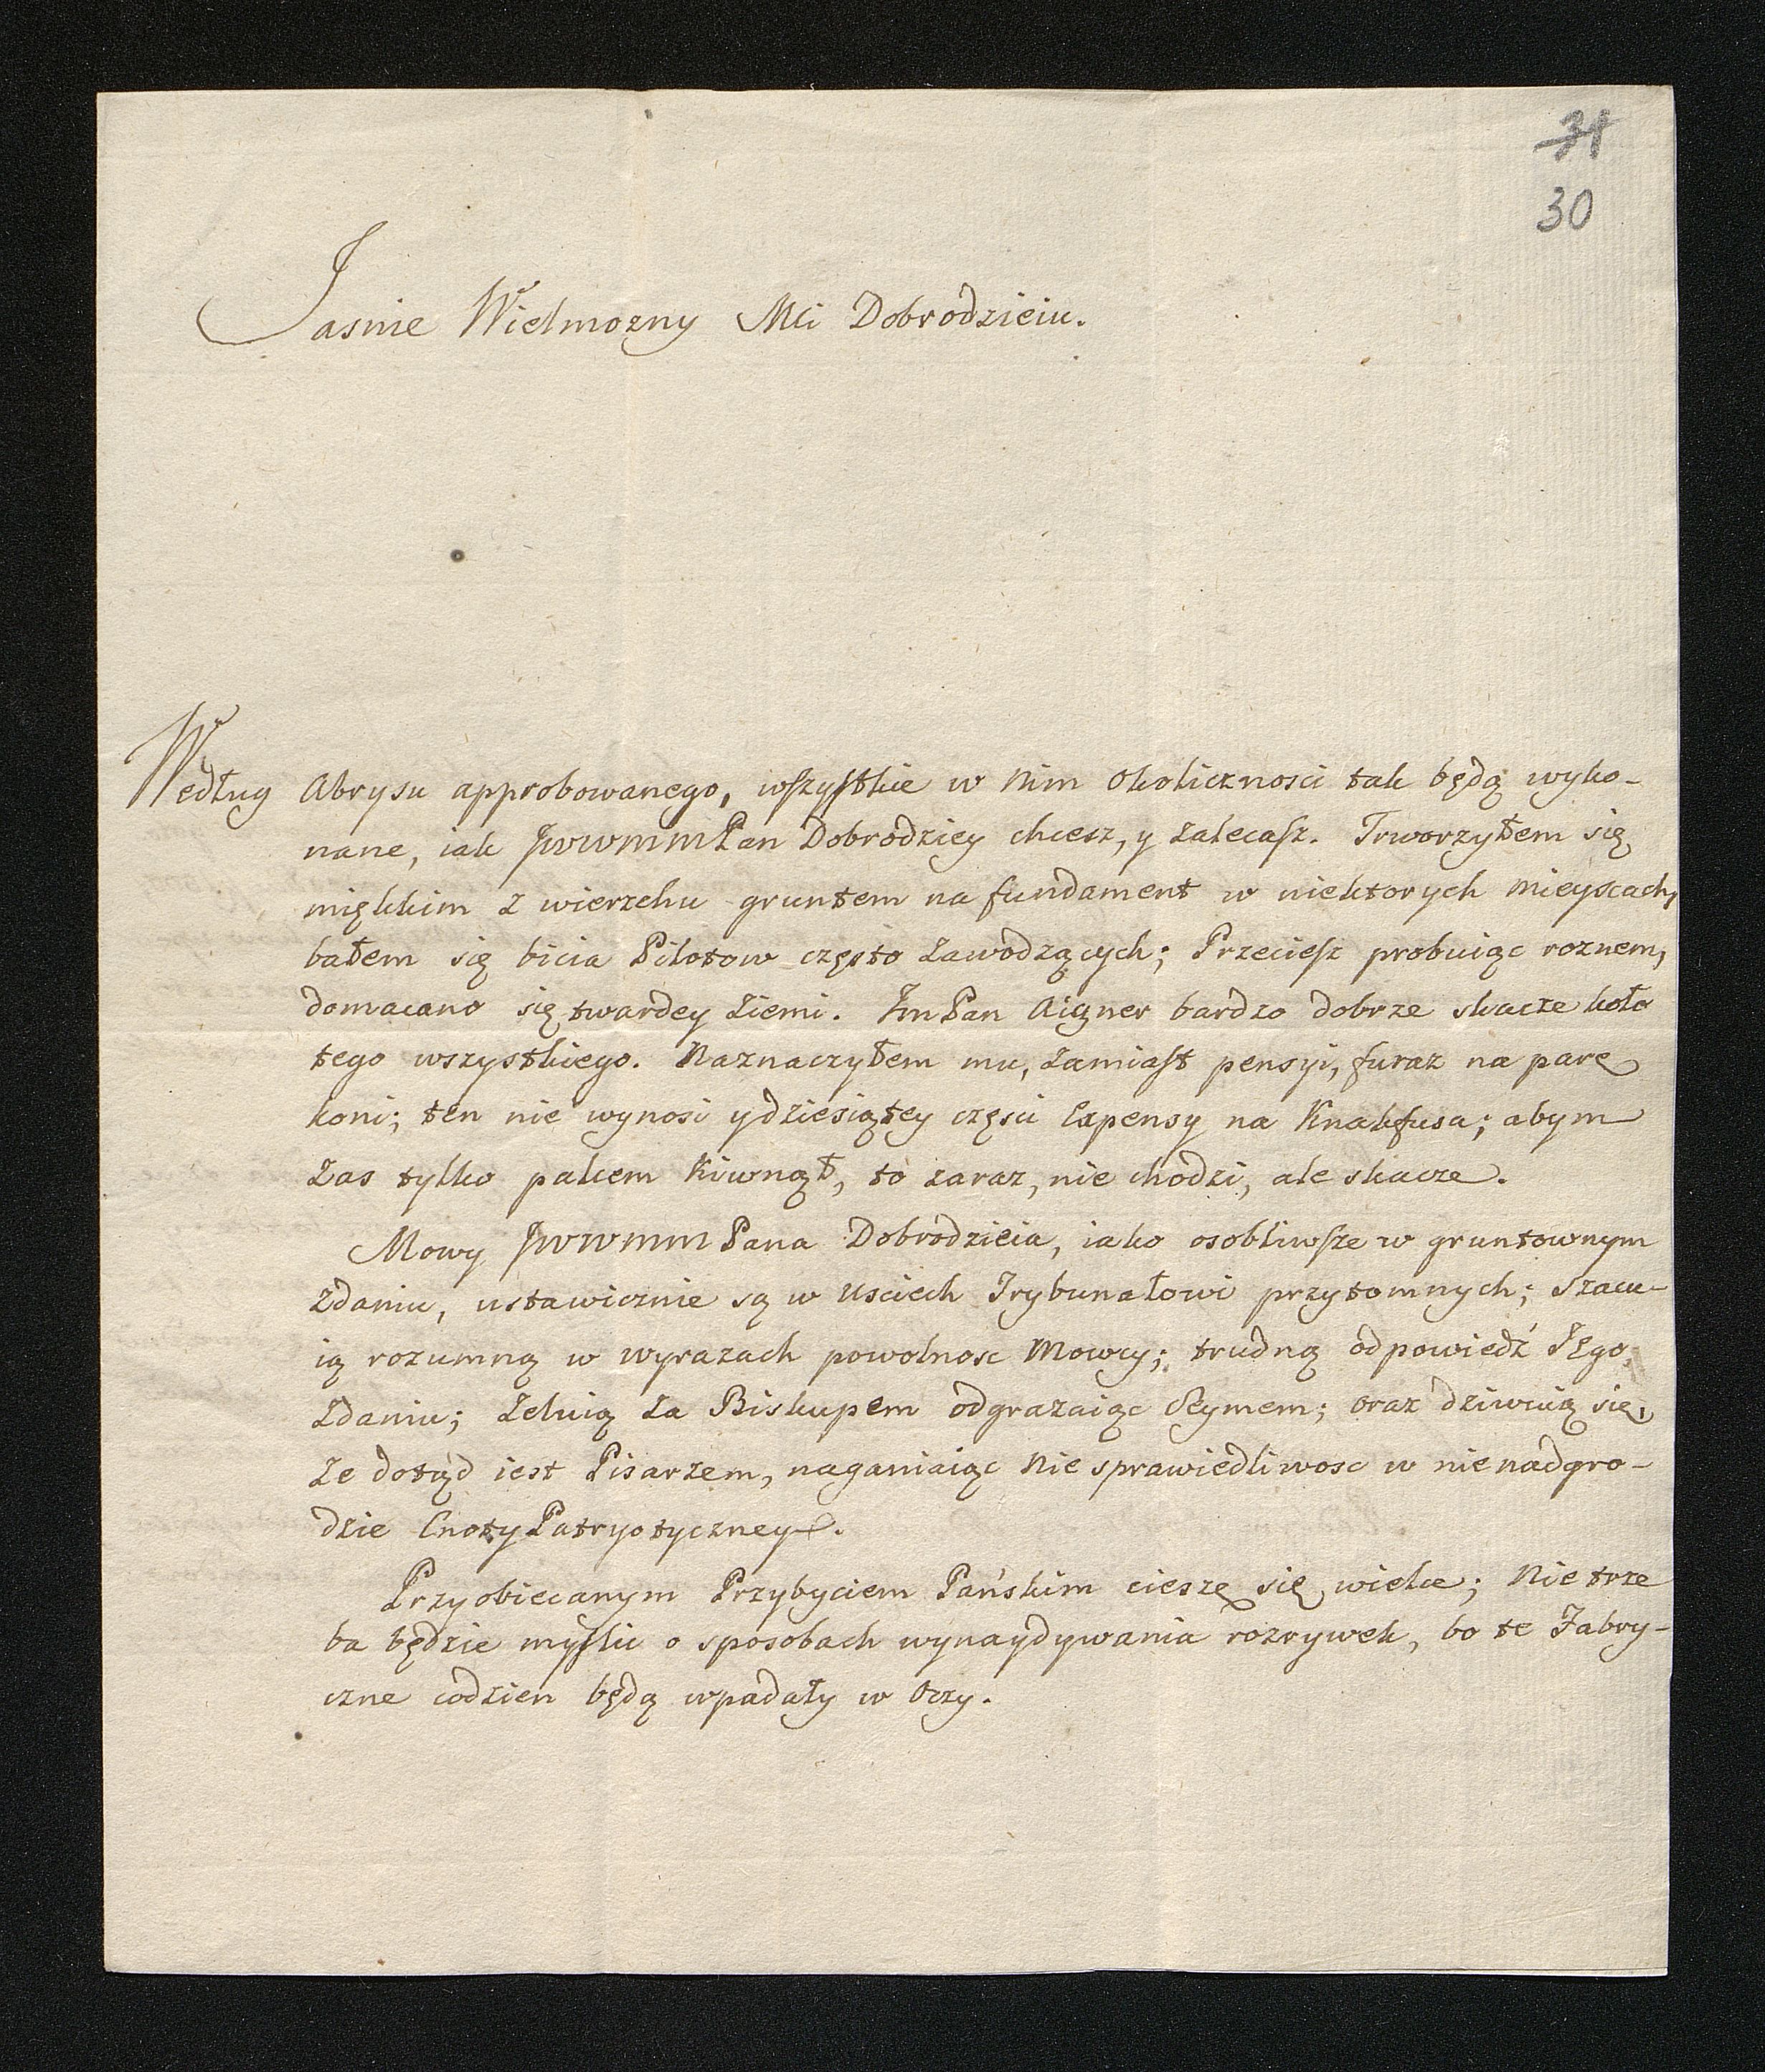 31
30
Jasnie Wielmozny Mci Dobrodzieiu.
Według Abrysu approbowanego, wszystkie w Nim Okolicznosci tak będą wyko-
nane, iak JWWMMPan Dobrodziey chcesz, y zalecasz. Trworzyłem się
miękkim z wierzchu gruntem na fundament w niektorych Mieyscach,
bałem się bicia Pilotow często zawodzących; Przeciesz probuiąc roznem,
domacano się twardey Ziemi. ImPan Aigner bardzo dobrze skacze koło
tego wszystkiego. Naznaczyłem mu, zamiast pensyi, furaz na parę
koni; ten nie wynosi y dziesiątey częsci Expensy na Knakfusa; abym
zas tylko palcem kiwnął, to zaraz, nie chodzi, ale skacze.
Mowy JWWMM Pana Dobrodzieia, iako osobliwsze w gruntownym
zdaniu, ustawicznie są w Usciech Trybunałowi przytomnych; szacu-
ią rozumną w wyrazach powolnosc Mowcy; trudną odpowiedź Jego
zdaniu; Zeluią za Biskupem odgrazaiąc Seymem; oraz dziwuią się,
ze dotąd iest Pisarzem, naganiaiąc Nie sprawiedliwosc w nienadgro-
dzie Cnoty Patryotyczney.
Przyobiecanym Przybyciem Pańskim cieszę się wielce; Nie trze
ba będzie myslic o sposobach wynaydywania rozrywek, bo te Fabry-
czne codzien będą wpadały w Oczy.